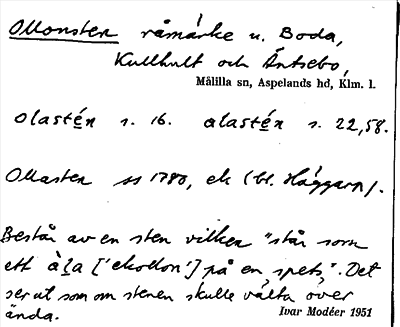 Ollonsten råmärke u. Boda,
Kullhult och Äntsebo,
Målilla sn, Aspelands hd, Klm. l.
olastén s. 16. alastén s. 22,58.
Ollasten ss 1780, ek (bl. Häggarp).
Består av en sten vilken "står som
ett à̱la ['ekollon'] på en spets,". Det
ser ut som om stenen skulle välta över
ända.
Ivar Modéer 1951